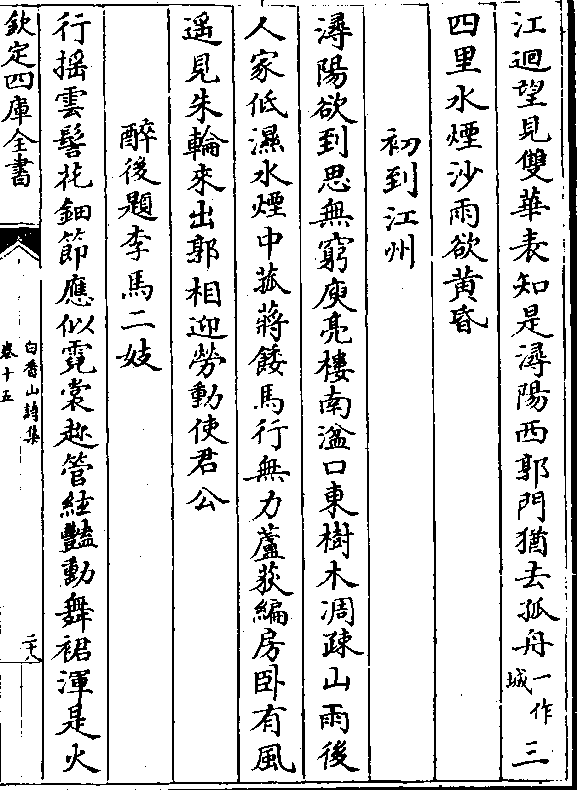 江迴望見雙華表知是潯陽西郭門猶去孤舟一作城三
四里水煙沙雨欲黄昏
初到江州
潯陽欲到思無窮庾亮樓南湓口東樹木凋疎山雨後
人家低濕水煙中菰蔣餧馬行無力蘆荻編房卧有風
遥見朱輪來出郭相迎勞動使君公
醉後題李馬二妓
行揺雲髻花鈿節應似霓裳趂管絃豔動舞裙渾是火
欽定四庫全書
白香山詩集
卷十五
二十八